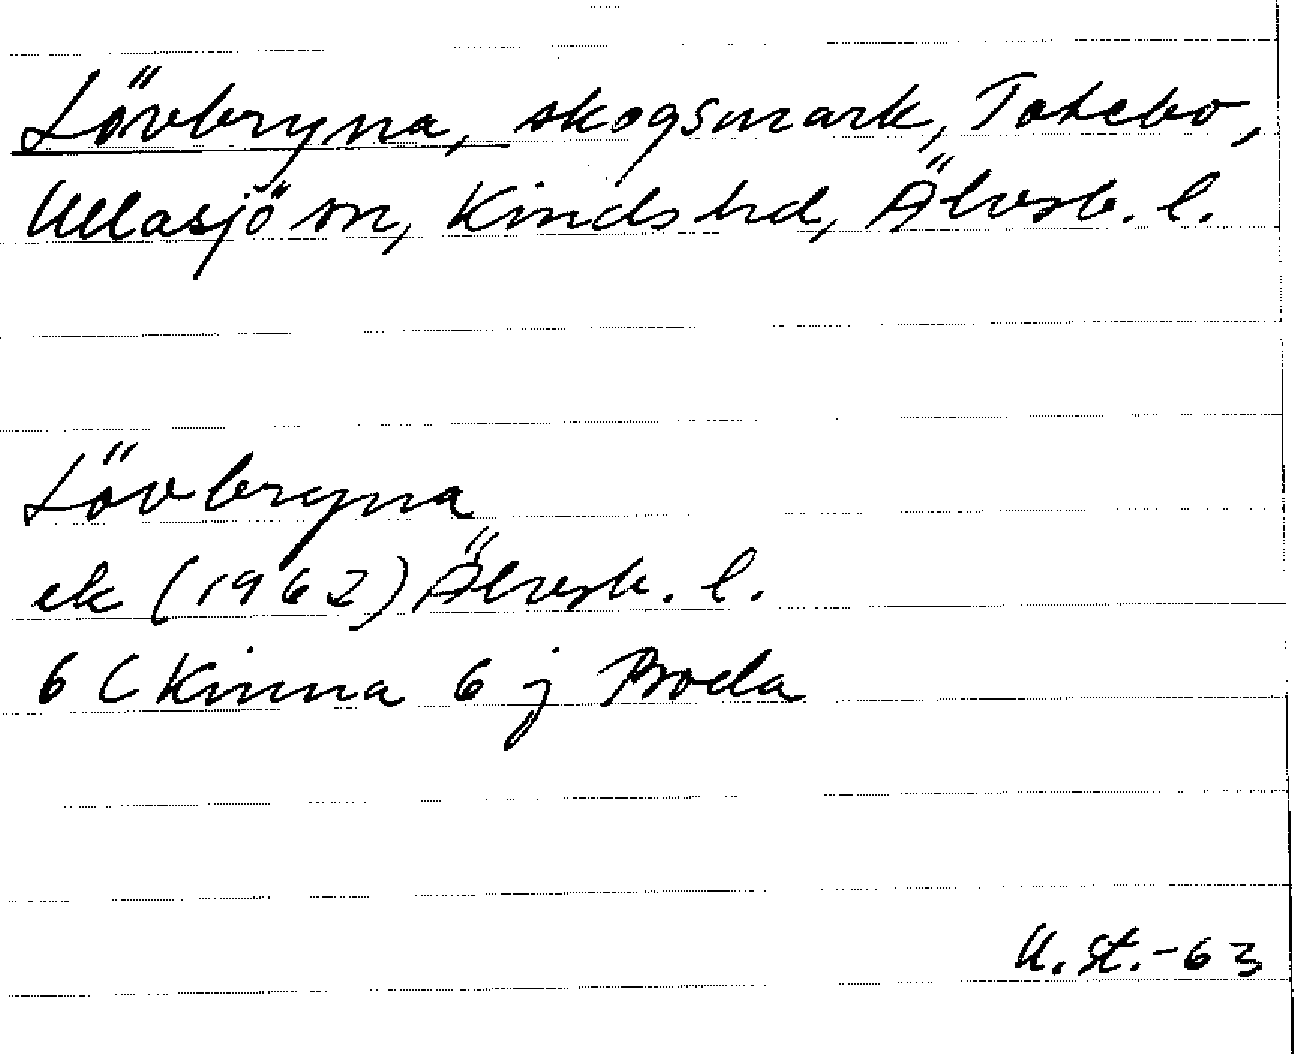 Lövbryna, skogsmark, Totebo,
Ullasjö sn, Kinds hd, Älvsb. l.
Lövbryna
ek (1962) Älvsb. l.
6 C Kinna 6 j Broda
U. St.-63